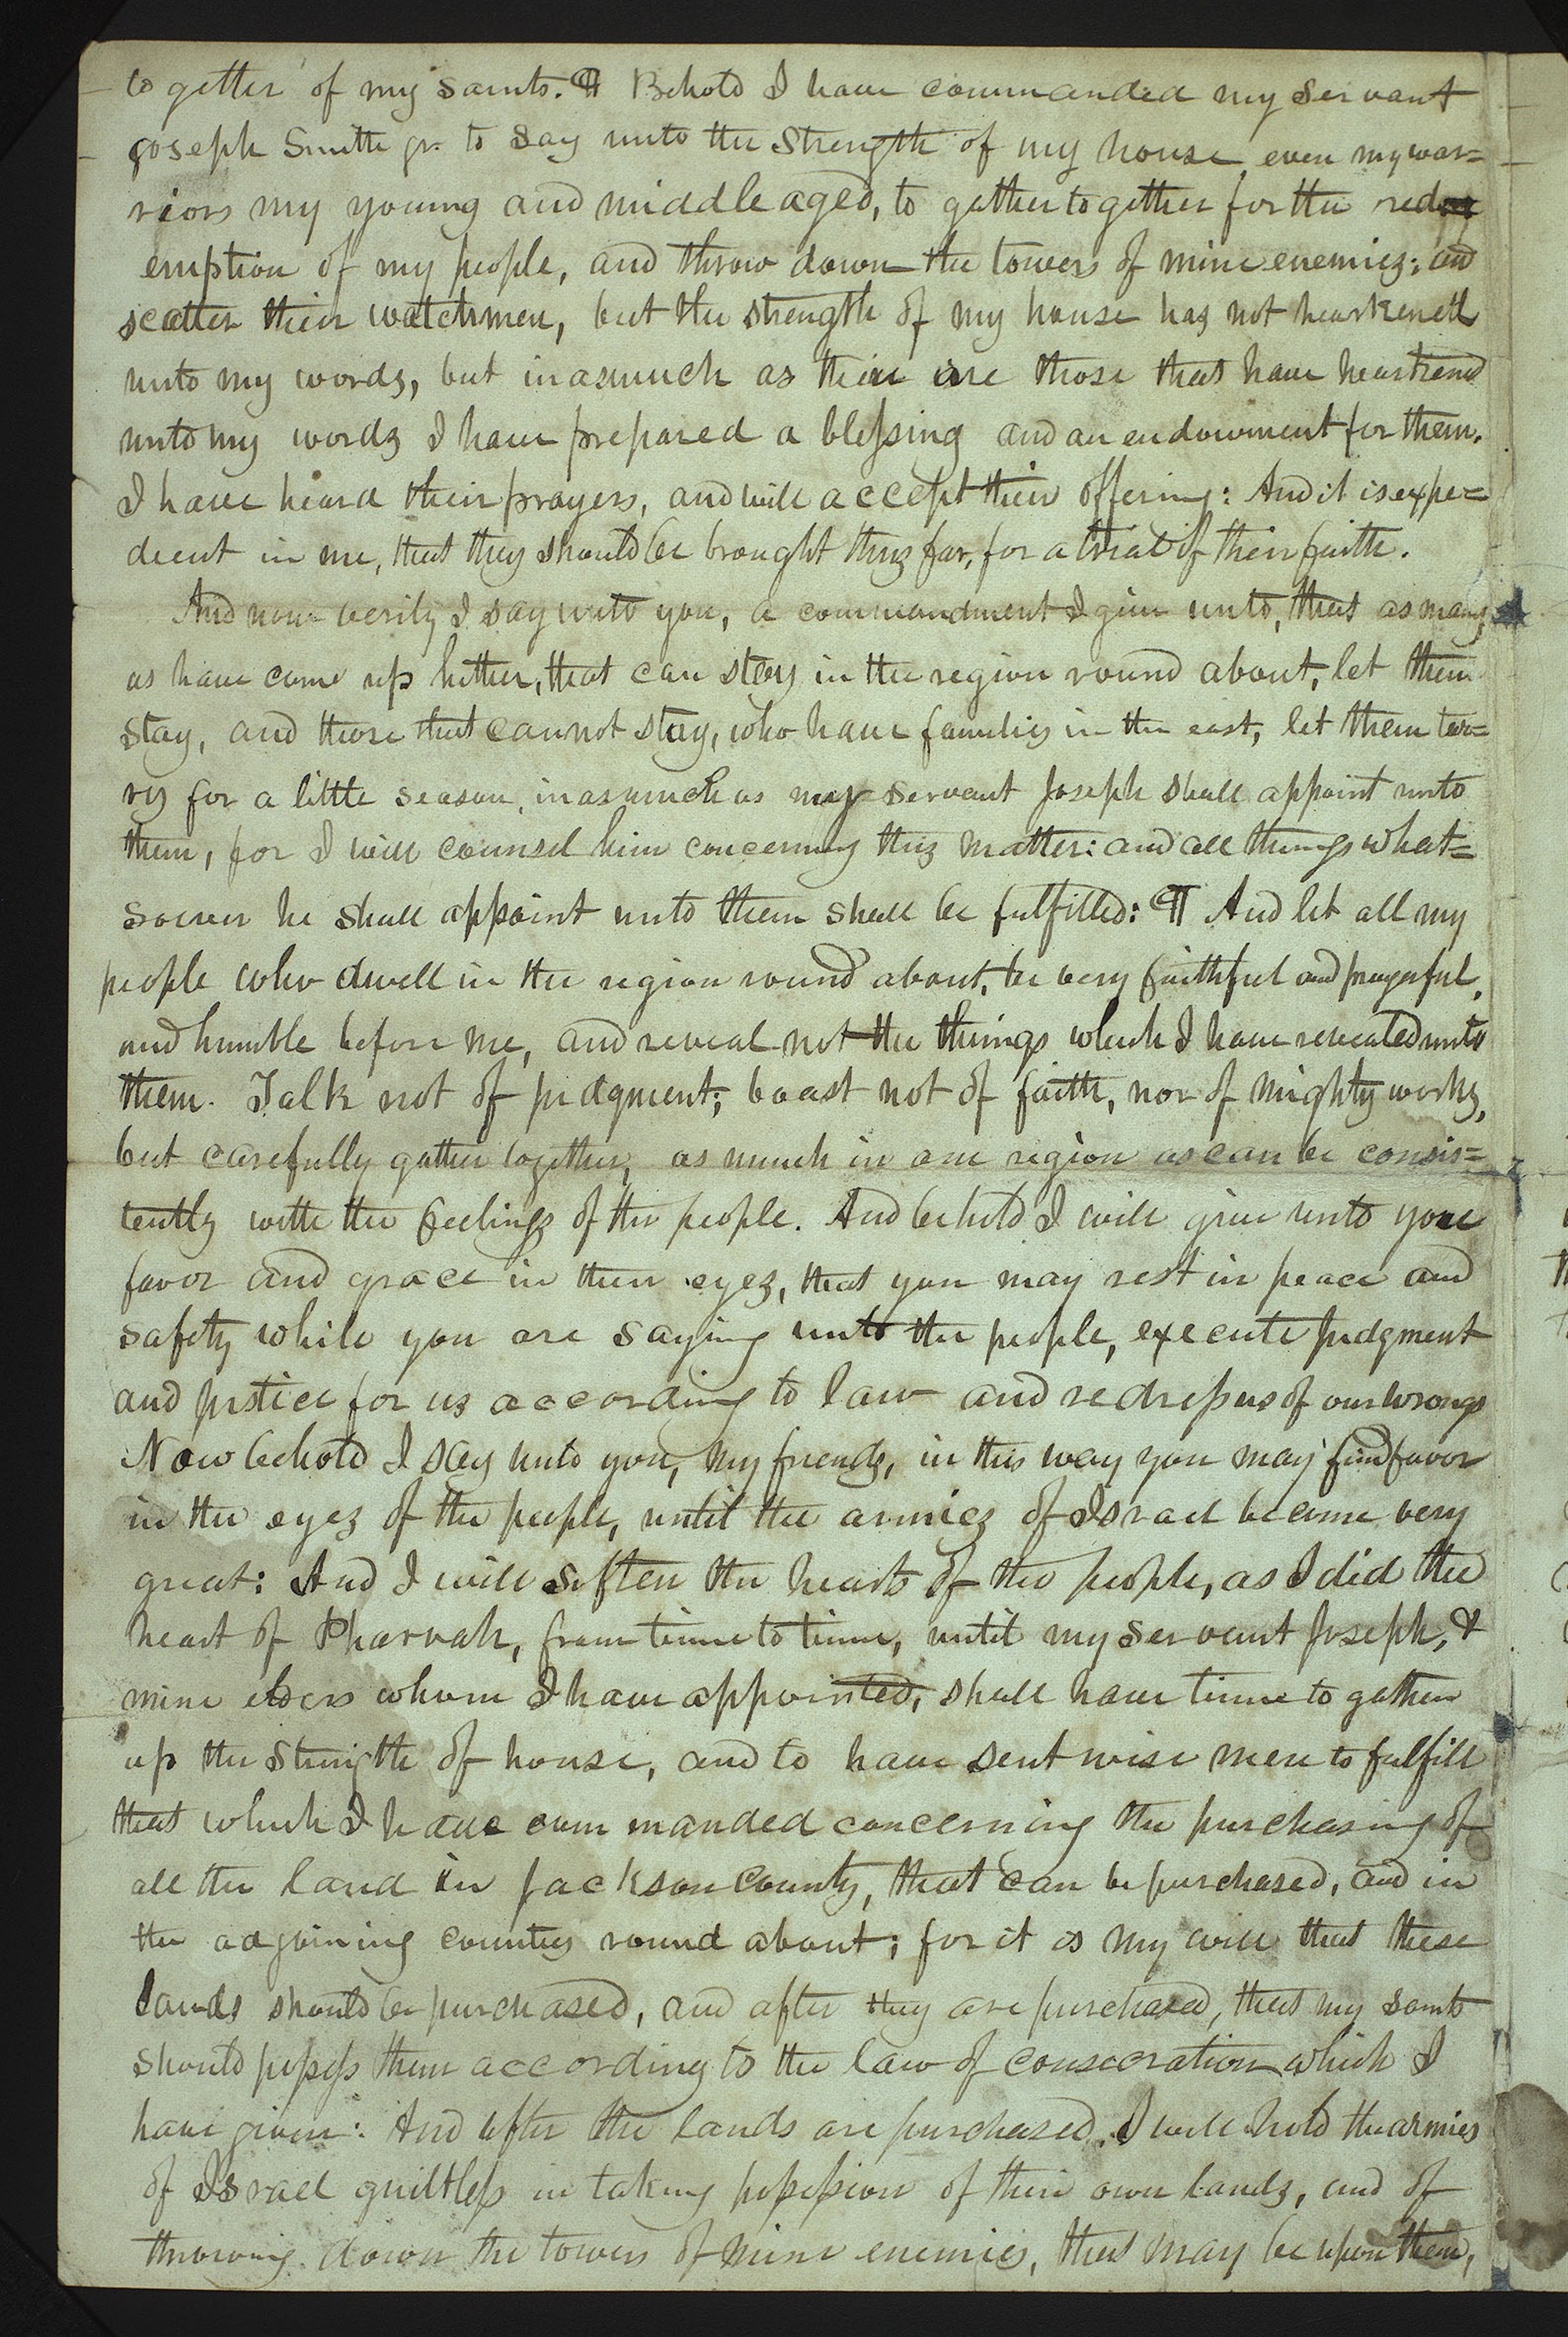 to gether of my saints. ¶ Behold I have commanded my servant
Joseph Smith jr. to say unto the strength of my house, even my war=
riors my young and middle aged, to gather together for the red
emption of my people, and throw down the towers of mine enemies; and
scatter their watchmen, but the strength of my house has not hearkened
unto my words, but inasmuch as their are those that have hearkend
unto my words I have prepared a blessing and an endowment for them.
I have heard their prayers, and will accept their offering: And it is expe=
dient in me, that they should be brought thus far, for a trial of their faith.
And now verily I say unto you, a commandment I give unto, that as many
as have come up hither, that can stay in the region round about, let them
stay, and those that cannot stay, who have families in the east, let them tar=
ry for a little season, inasmuch as my servant Joseph shall appoint unto
them, for I will counsel him concerning this matter: and all things what=
soever he shall appoint unto them shall be fulfilled: ¶ And let all my
people who dwell in the region round about, be very faithful and prayerful,
and humble before me, and reveal not the things which I have revealed unto
them. Talk not of judgment; boast not of faith, nor of mighty works,
but carefully gather together, as much in one region as can be consis=
tently with the feelings of the people. And behold I will give unto you
favor and grace in their eyes, that you may rest in peace and
safety while you are saying unto the people, execute judgment
and justice for us according to law and redress us of our wrongs
Now behold I say unto you, my friends, in this way you may find favor
in the eyes of the people, until the armies of Israel become very
great: And I will soften the hearts of the people, as I did the
heart of Pharoah, from time to time, until my servant Joseph, &
mine elders whom I have appointed, shall have time to gather
up the strength of house, and to have sent wise men to fulfill
that which I have commanded concerning the purchasing of
all the land in Jackson County, that can be purchased, and in
the adjoining counties round about; for it is my will that these
lands should be purchased, and after they are purchased, that my saints
should possess them according to the law of consecration which I
have given: And after the lands are purchased, I will hold the armies
of Israel guiltless in taking possession of their own lands, and of
throwing down the towers of mine enemies, that may be upon them,